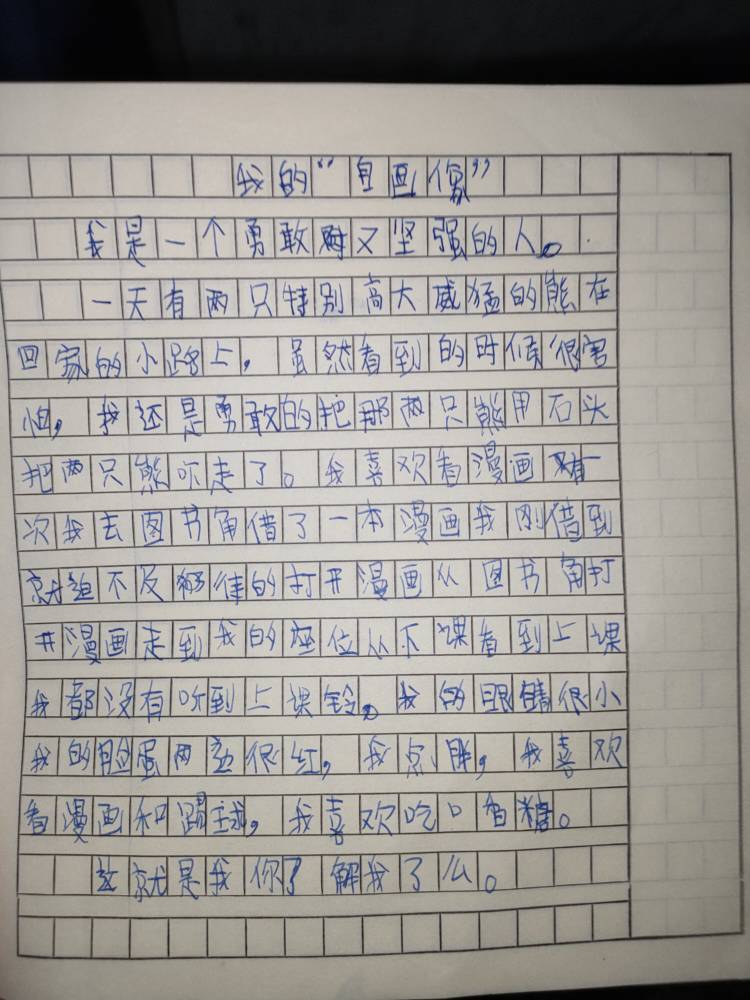 我的“自画像”
我是一个勇敢时又坚强的人。
一天有两只特别高大威猛的熊在
回家的小路上,虽然看到的时候很害
怕,我还是勇敢的把那两只熊用石头
把两只熊吓走了。我喜欢看漫画有一
次我去图书角借了一本漫画我刚借到
就迫不及待的打开漫画从图书角打
开漫画走到我的座位从下课看到上课
我都没有听到上课铃。我的眼睛很小
我的脸蛋两边很红,我点胖,我喜欢
看漫画和踢球,我喜欢吃口香糖。
这就是我你了解我了么。